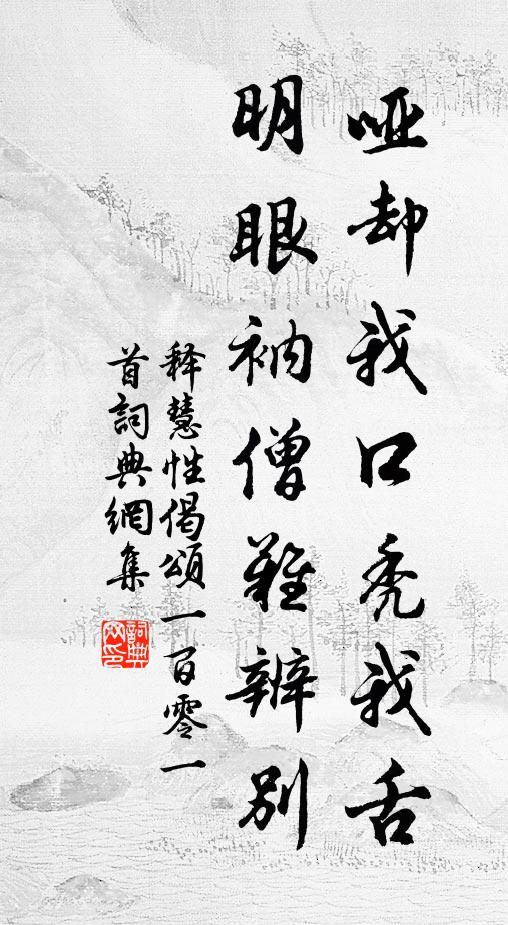 哑却我口秃我舌
明眼衲僧难辨别
释慧性偈颂一百零一
首詞典網集
詞典
网印